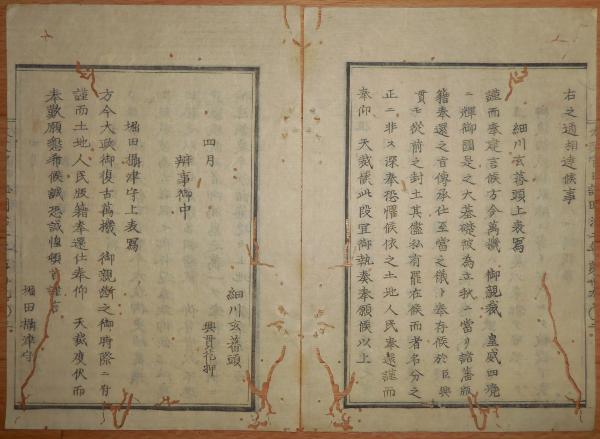 右之通相達候事
細川玄蕃頭上表寫
謹而奉建言候方今萬機 御親裁 皇威四境
ニ輝御國是之大基礎被為立秋ニ當リ諸藩版
籍奉還之言傳承仕至當之儀ト奉存候於臣興
貫モ從前之封土其儘私有罷在候而者名分之
正ニ非ス深奉恐懼候依之土地人民奉還謹而
奉仰 天裁候此段宜御執奏奉願候以上
四月
辨事御中
細川玄蕃頭
興貫花押
堀田攝津守上表寫
方今大政御復古萬機 御親断之御時際ニ付
謹而土地人民版籍奉還仕奉仰 天裁度伏而
奉歎願懇希候誠恐誠惶頓首謹言
堀田攝津守